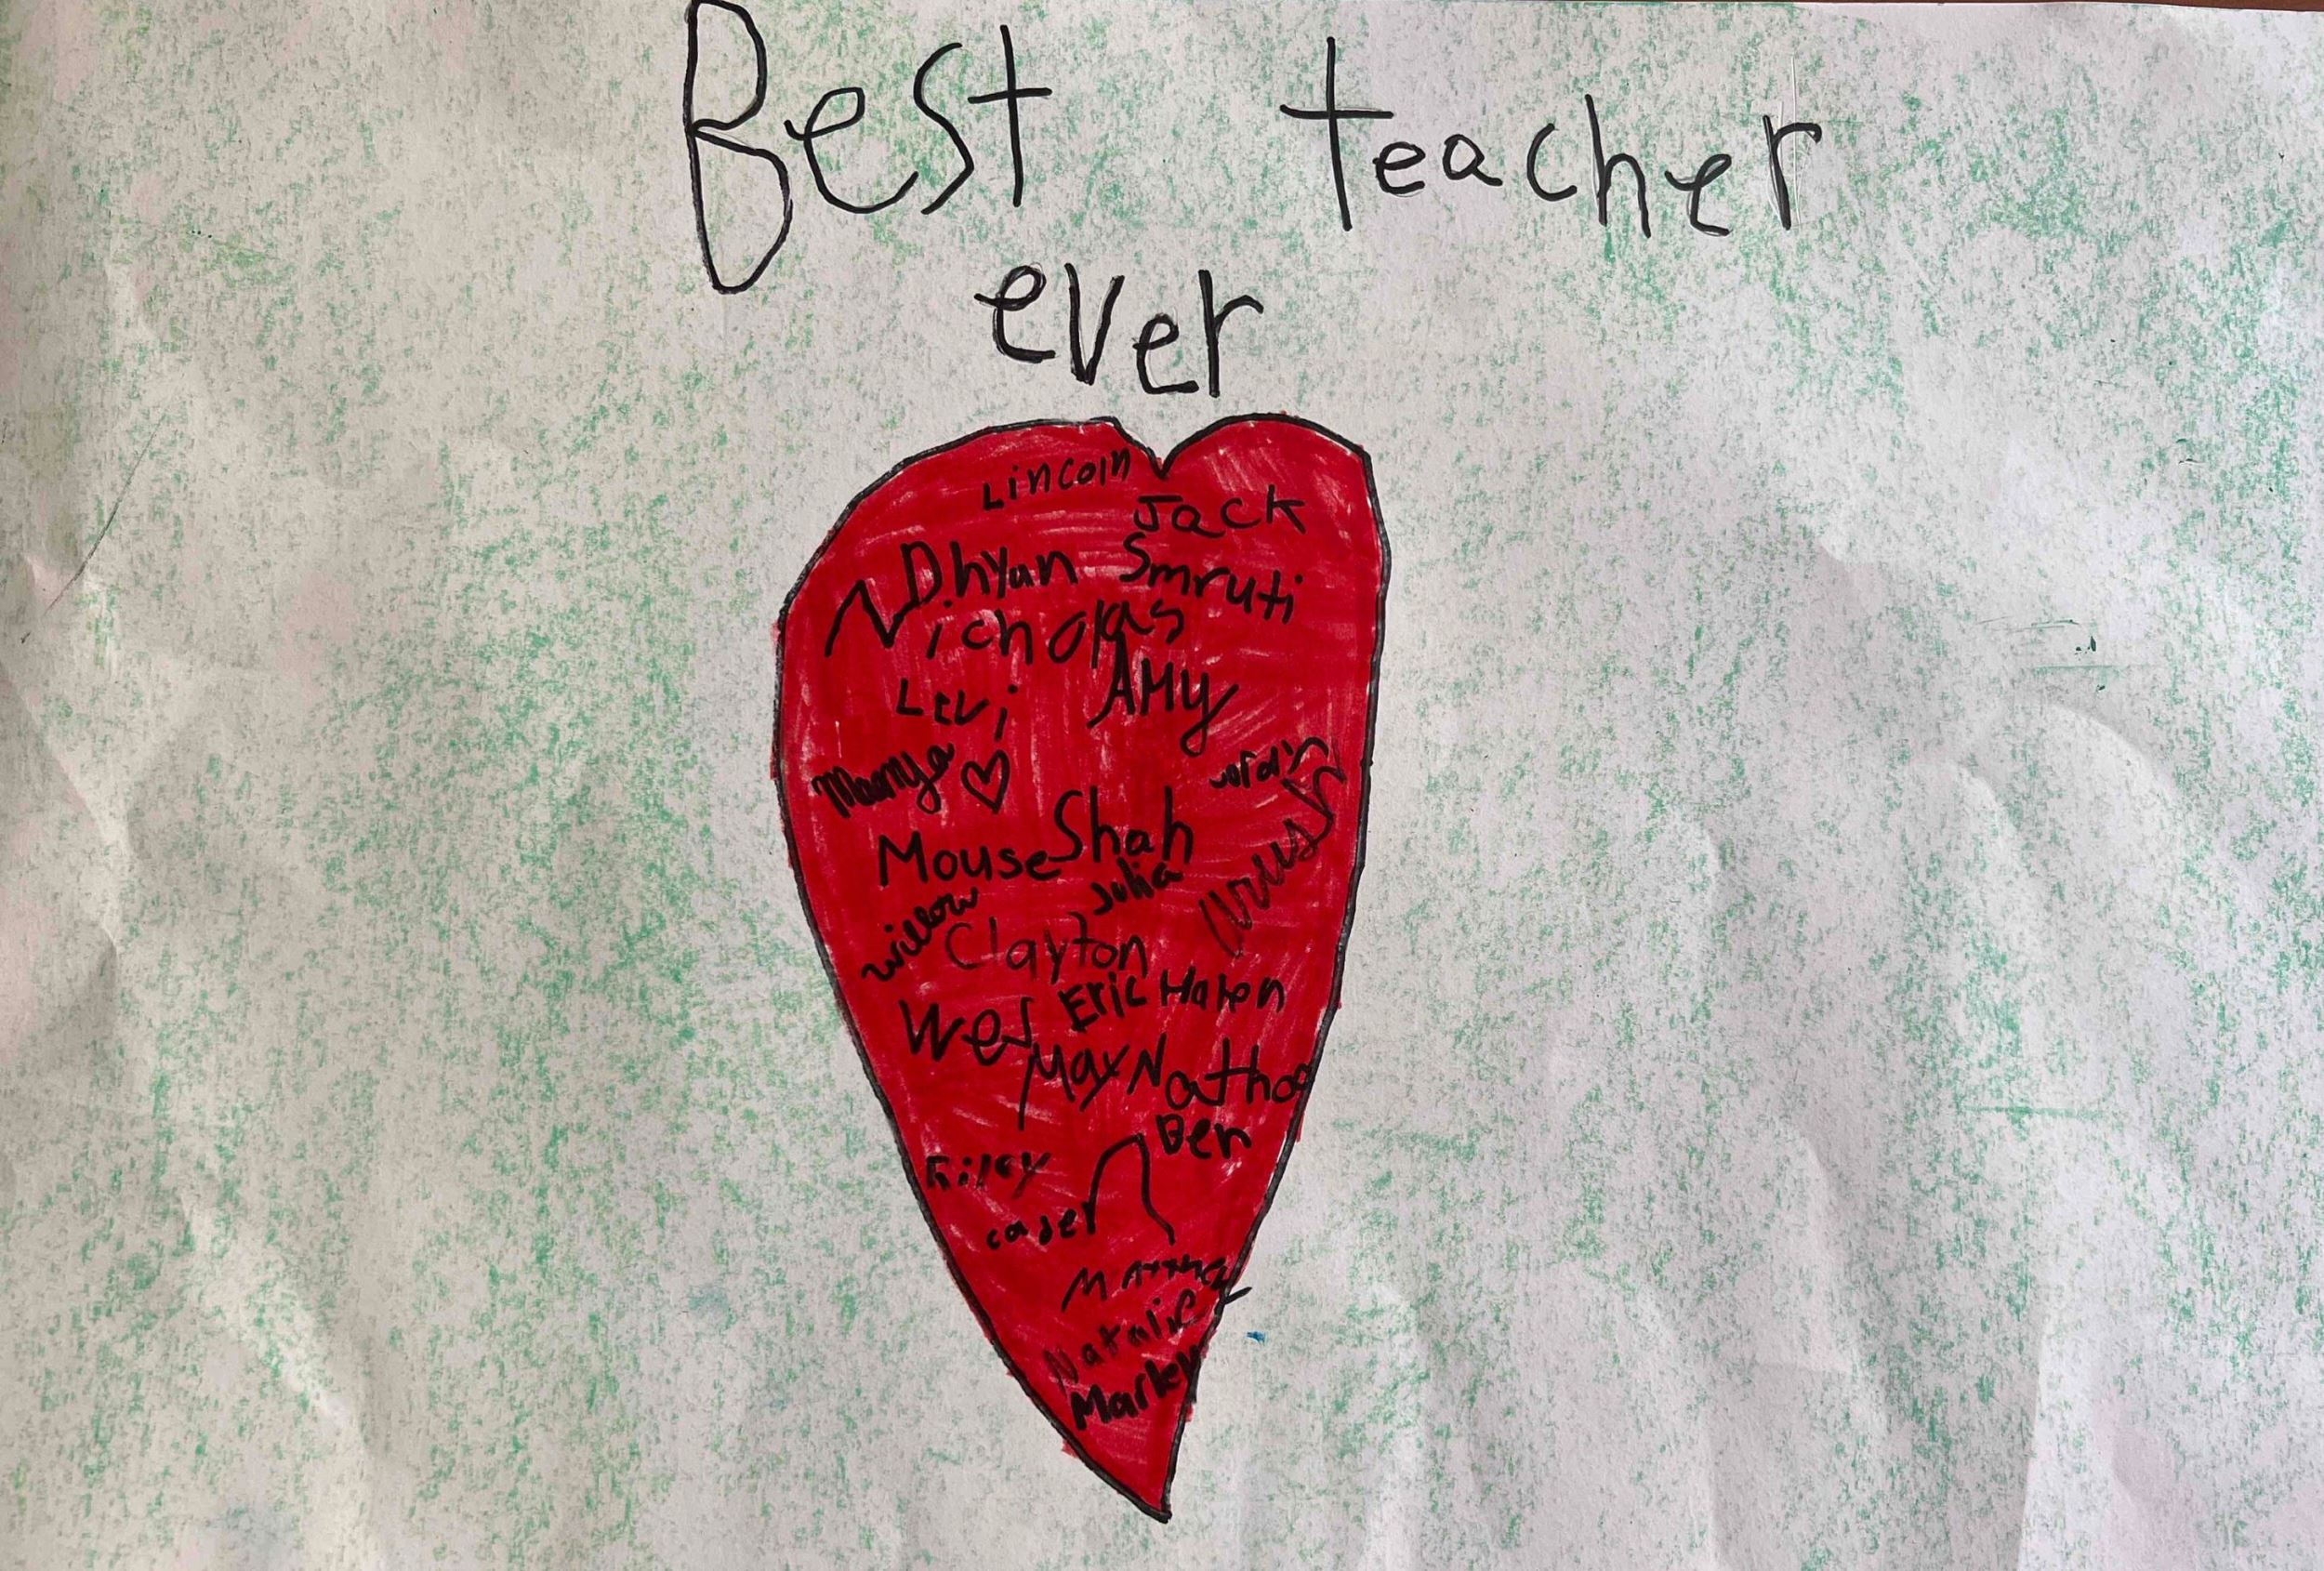 Best teacher
ever
Lincoln
Jack
Dhyan Smruti
Nicholas
Levi AMy
Manya ♡
Mouse Shah
Julia
willow
Clayton
Wes Eric Haren
Max Nathan
Ben
Riley
caden
Matthew
Natalie
Marley